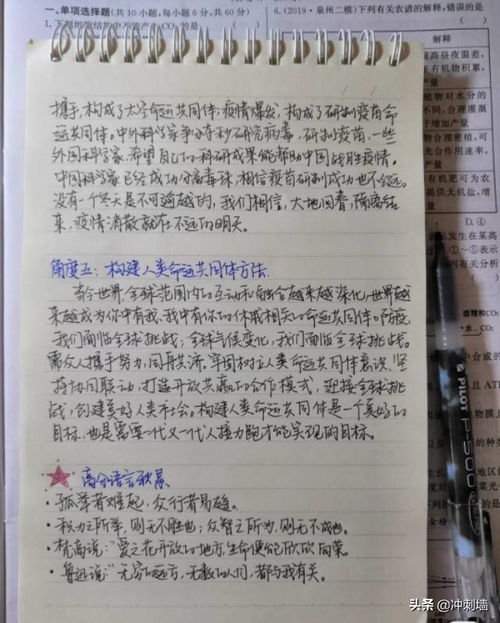 一、单项选择题(共10小题,每小题6分,共60分)
6.(2019·泉州二模)下列有关农谚的解释,错误的是
解释
携手,构成了太空命运共同体;疫情爆发,构成了研制疫苗命
运共同体。中外科学家争分夺秒研究病毒,研制疫苗,一些
外国科学家,希望自己的科研成果能帮助中国战胜疫情。
中国科学家已经成功分离毒株,相信疫苗研制成功也不会远。
没有一个冬天是不可逾越的,我们相信,大地回春,隔离结
束,疫情消散就在不远的明天。
角度五:构建人类命运共同体方法.
当今世界,全球范围内的互动和融合越来越深化,世界越
来越成为你中有我,我中有你的休戚相关的命运共同体。防疫
我们面临全球挑战;全球气候变化,我们面临全球挑战。
需众人携手努力,同舟共济。牢固树立人类命运共同体意识,坚
持协同联动,打造开放共赢的合作模式,迎接全球挑
战,创建美好人类社会。构建人类命运共同体是一个美好的
目标,也是需要一代又一代人接力跑才能实现的目标。
高分语言积累
·孤举者难起,众行者易趋。
·积力之所举,则无不胜也;众智之所为,则无不成也。
·梵高说:“爱之花开放的地方,生命便能欣欣向荣。
·鲁迅说:“无穷的远方,无数的人们,都与我有关。
D.④
PILOT P-500
头条 @冲刺墙